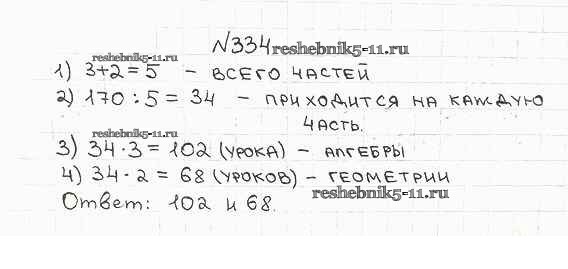 №334 reshebnik5-11.ru
reshebnik5-11.ru
1) 3+2=5 – ВСЕГО ЧАСТЕЙ
2) 170 : 5 = 34 – ПРИХОДИТСЯ НА КАЖДУЮ
ЧАСТЬ.
reshebnik5-11.ru
3) 34 · 3 = 102 (УРОКА) – АЛГЕБРЫ
4) 34 · 2 = 68 (УРОКОВ) – ГЕОМЕТРИИ
reshebnik5-11.ru
Ответ: 102 и 68.